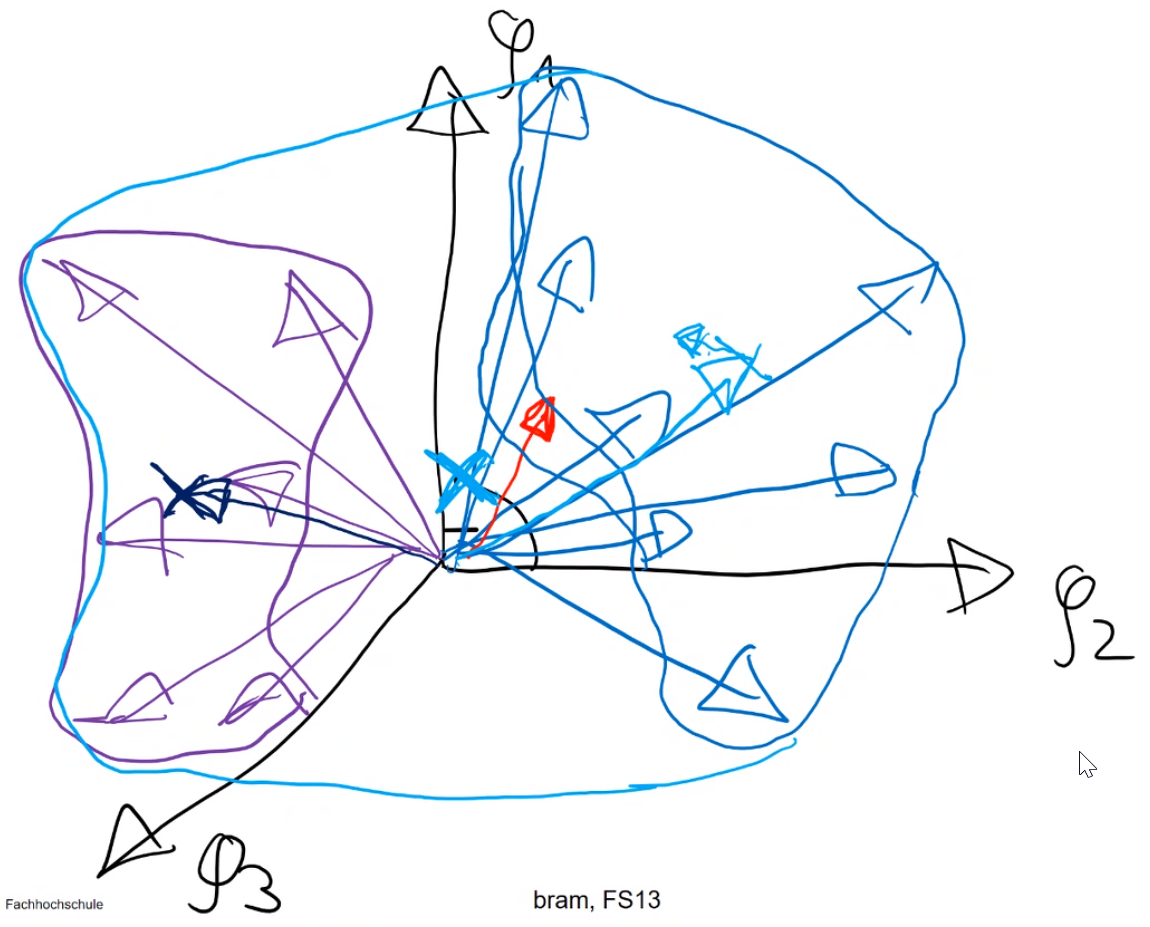 φ1
φ2
φ3
Fachhochschule
bram, FS13